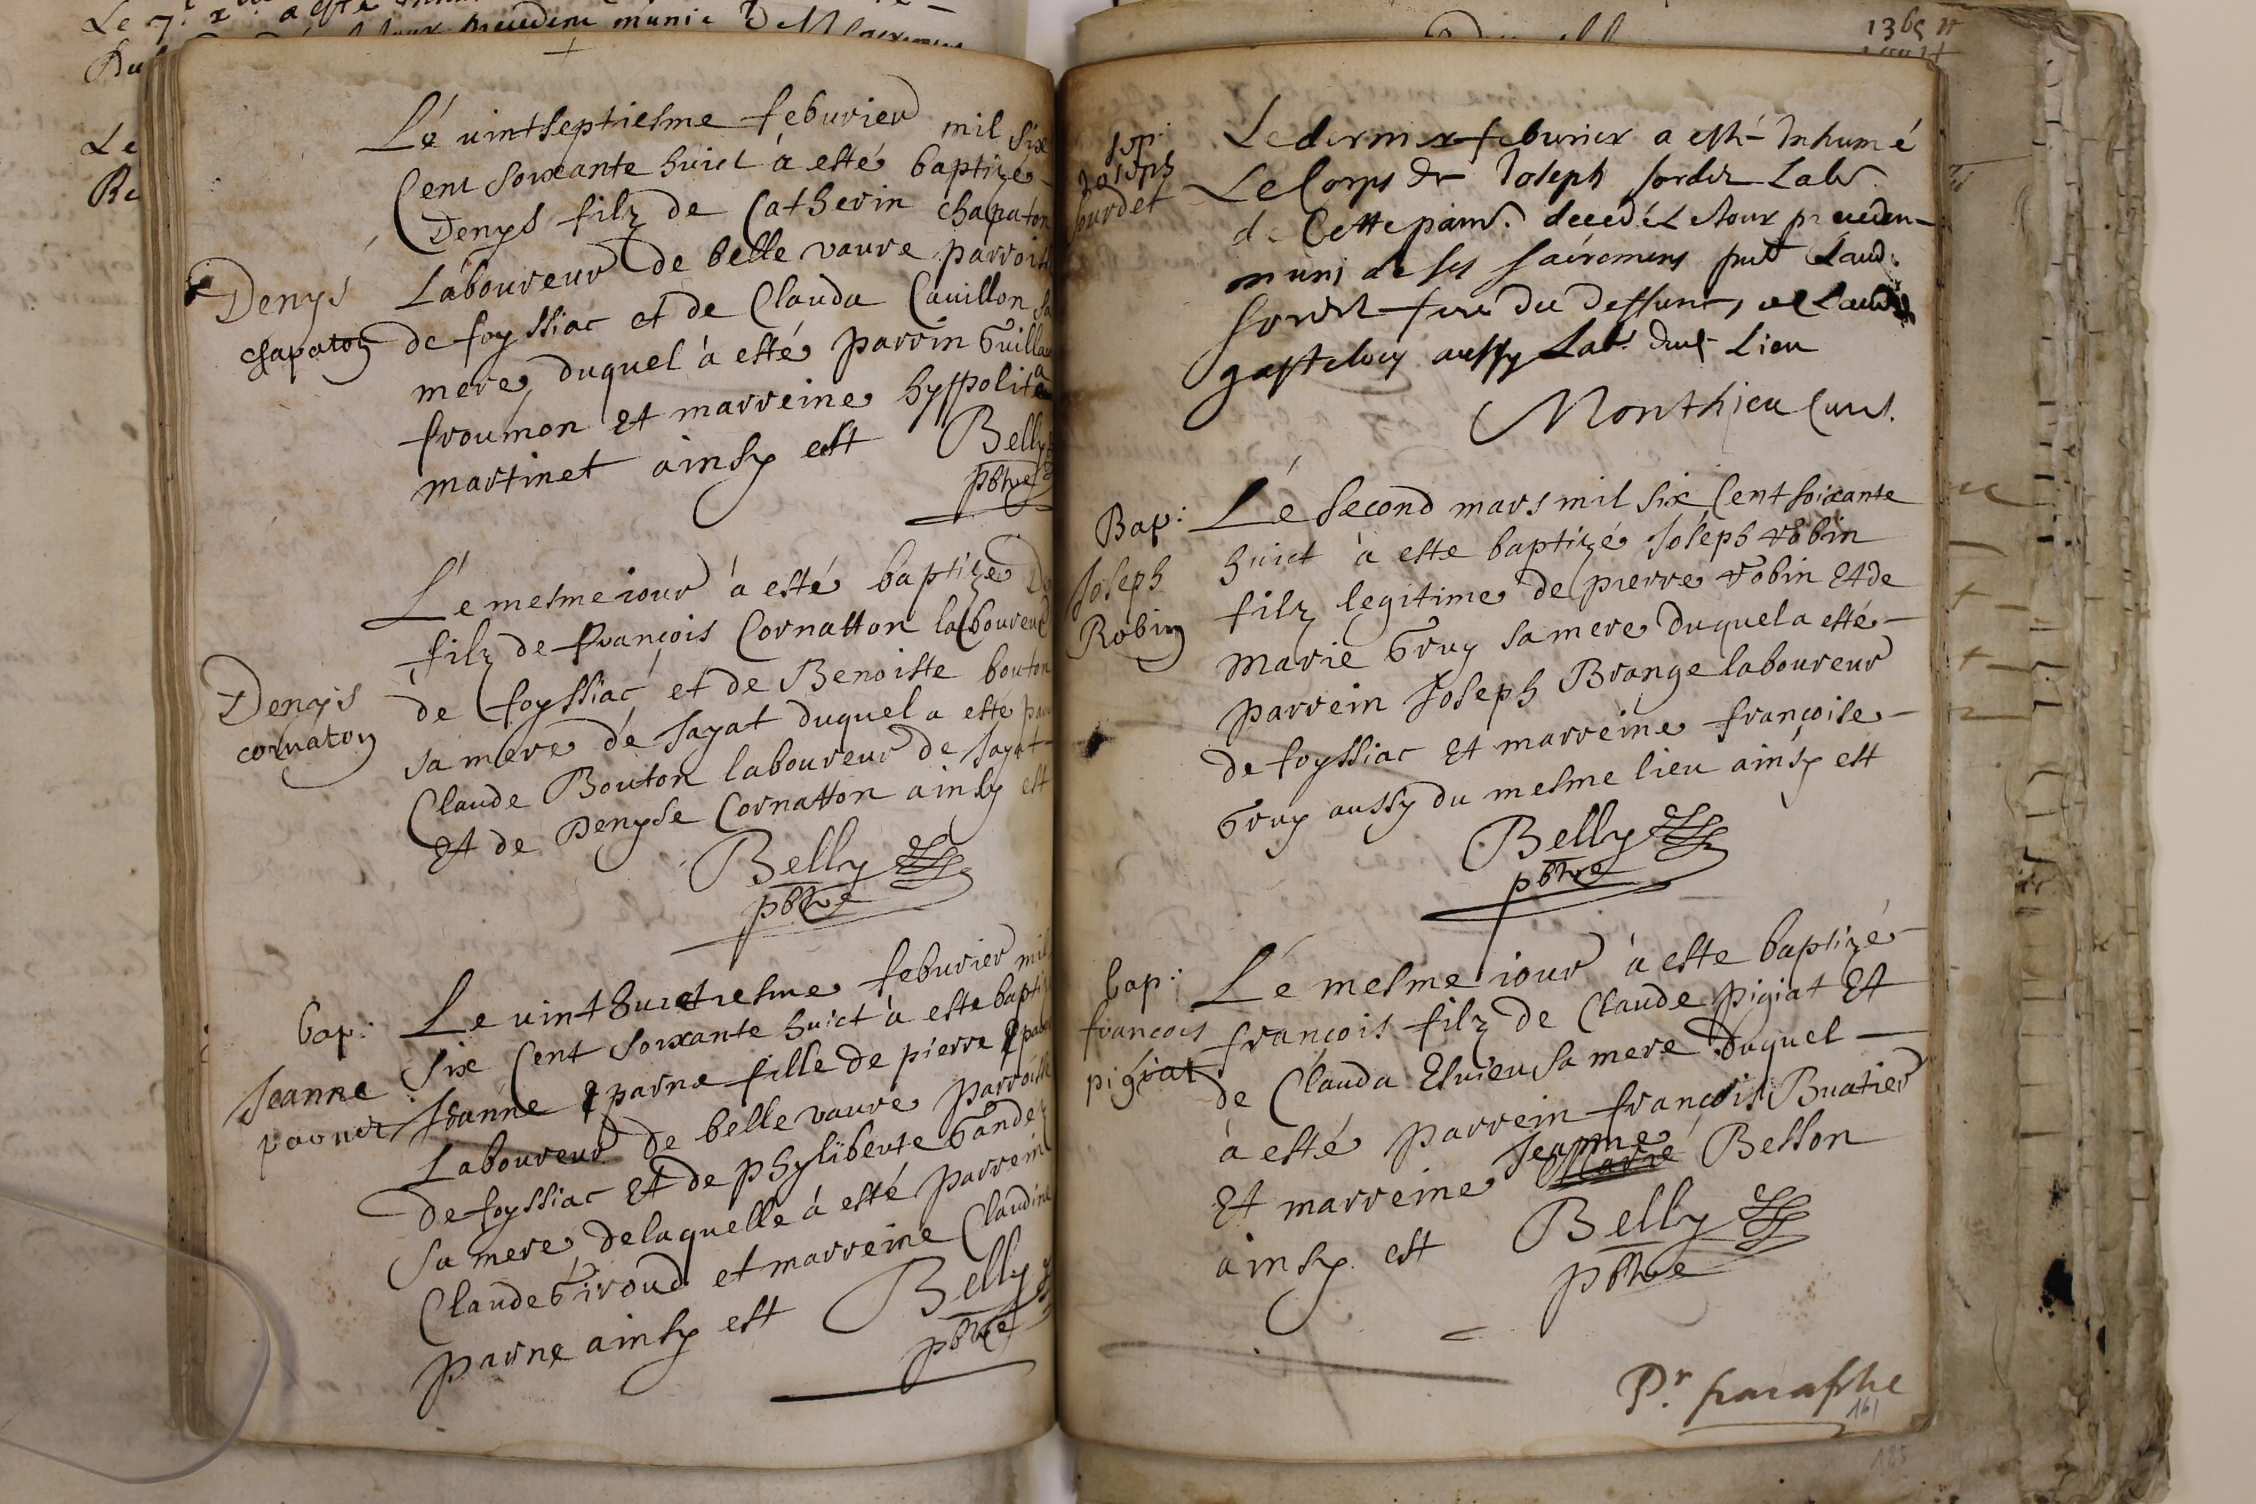 Le vintseptiesme feburier mil six
Cent soixante huict à esté baptize
Denys filz de Catherin chapaton
Laboureur de belle vavre parroi
Denys
chapaton
de foyssiac et de Clauda Cauillon sa
mere, duquel à esté parrin Guillau
froumon et marreine hyppolite
martinet ainsy est Belly
pbtre
Lé mesme iour à esté baptize De
filz de françois Cornatton laboureur
de foyssiac et de Benoiste bouton
Denys
cornaton
sa mere de sayat duquel a esté par
Claude Bouton laboureur de sayat
Et de Denyse Cornatton ainsy est
Belly
pbtre
bap:
Jeanne
parnet
Le vinthuictiesme feburier mil
six Cent soixante huict à esté bapti
Jeanne parne fille de pierre
Laboureur de belle vavre parroisse
de foyssiac Et de phyliberte Gande
sa mere, delaquelle à esté parrein
Claude Giroud et marreine Claudine
parne ainsy est Belly
pbtre
13bs
sep:
Joseph
surdet
Le dernier feburier a esté Inhumé
Le Corps de Joseph sordet Labr
de Cette parr. decedé Le Jour preceden
muni de ses sacremens pnt Claud.
sordet frere du deffunt, et Claud
gasteluy aussy Labr. dud Lieu
Monthieu Curé.
Bap:
Joseph
Robin
Lé second mars mil six Cent soixante
huict à esté baptizé Joseph robin
filz legitime de pierre robin Et de
marie Gruy sa mere duquel a esté
parrein Joseph Brange laboureur
de foyssiac Et marreine françoise
Gruy aussy du mesme lieu ainsy est
Belly
pbtre
bap:
francois
pigiat
Lé mesme iour à esté baptizé
françois filz de Claude pigiat Et
de Clauda Elvieu sa mere duquel
à esté parrein françois Buatier
Et marreine Jeanne Marie Besson
ainsy est Belly
pbtre
Pr. paraphe
161
185